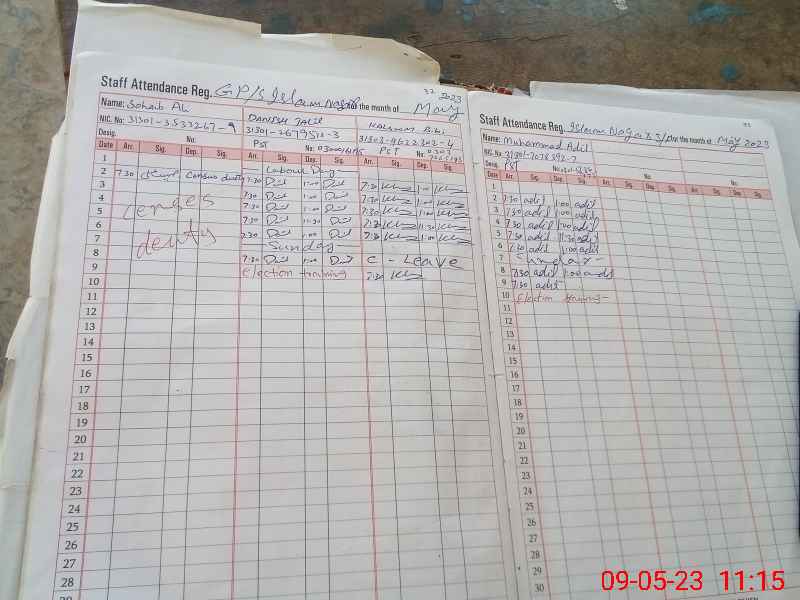 32 2023
Staff Attendance Reg. GP/S Islam Nagar for the month of May
Name: Sohaib Ali DANISH
NIC. No: 31301-3533267-9 31301-2679511-3 31303-9622302-4
Desig. No: PST No: PST No: 0303
Date Arr. Sig. Dep. Sig. Arr. Sig. Dep. Sig. Arr. Sig. Dep. Sig.
1 Labour Day
2 7:30 Census duty 7:30 1:00 7:30 1:00
3 7:30 1:00 7:30 1:00
4 censes 7:30 1:00 7:30 1:00
5 7:30 11:30 7:30 11:30
6 deuty 7:30 1:00 7:30 1:00
7 Sunday
8 7:30 1:00 C - Leave
9 election training 7:30
10
11
12
13
14
15
16
17
18
19
20
21
22
23
24
25
26
27
28
29
Staff Attendance Reg. Islam Nagar for the month of May 2023
Name: Muhammad Adil
NIC. No. 31301-7078392-7
Desig. PST No: No: No:
Date Arr. Sig. Dep. Sig. Arr. Sig. Dep. Sig. Arr. Sig. Dep. Sig.
1
2 7:30 adil 1:00 adil
3 7:30 adil 1:00 adil
4 7:30 adil 1:00 adil
5 7:30 adil 11:30 adil
6 7:30 adil 1:00 adil
7 Sunday
8 7:30 adil 1:00 adil
9 7:30 adil
10 Election training
11
12
13
14
15
16
17
18
19
20
21
22
23
24
25
26
27
28
29
30
09-05-23 11:15